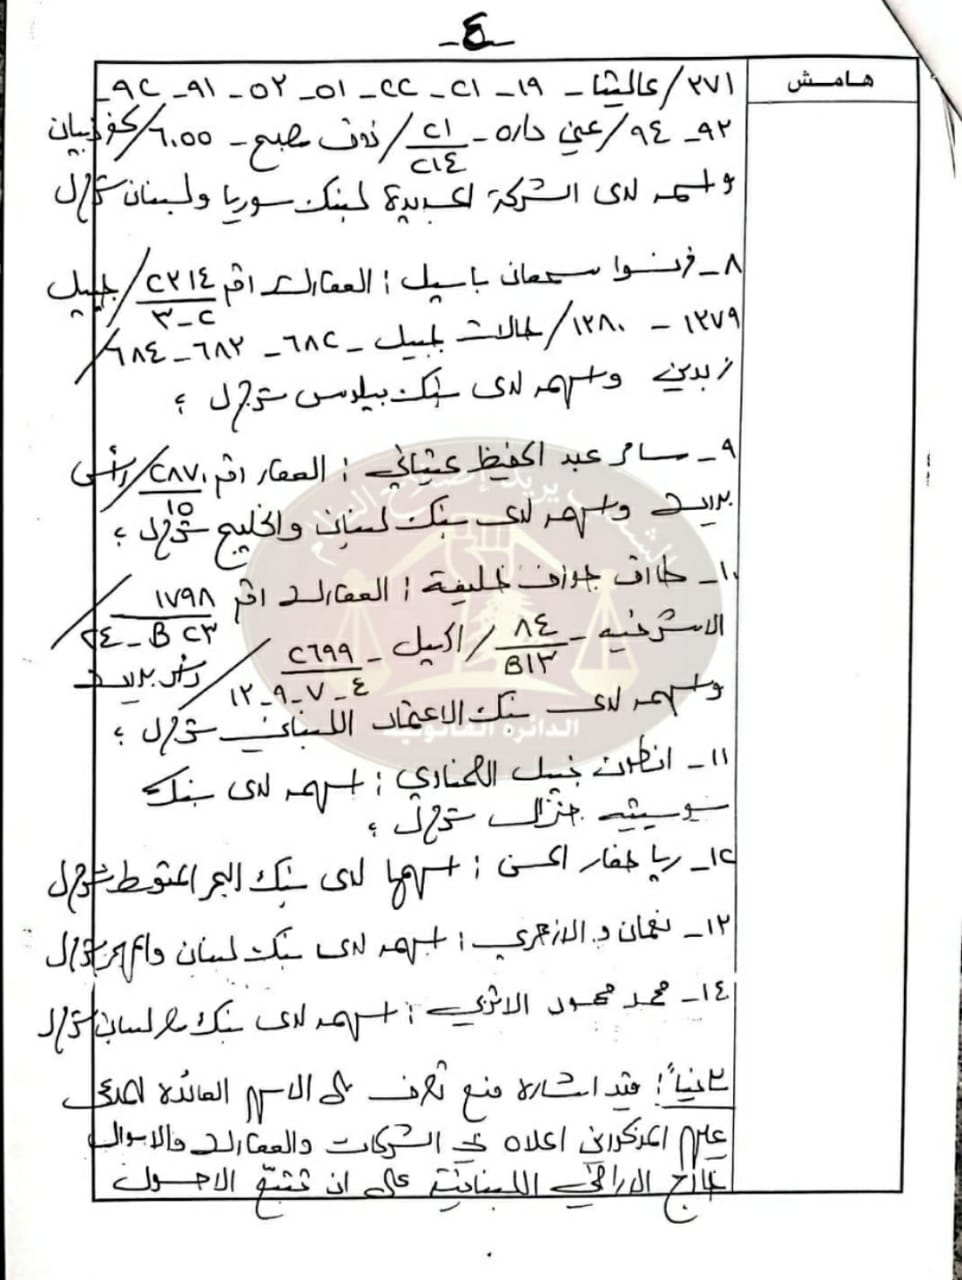 -٤-
هامش
٢٧١/ عاليتا - ١٩ - ٢١ - ٢٢ - ٥١ - ٥٢ - ٩١ - ٩٢ -
٩٣ - ٩٤ / عين داره - ٢١/٢١٤ / ذوق مصبح - ٦٠٥٥ / كفرذبيان
واسهمه لدى الشركة الجديدة لبنك سوريا ولبنان ش.م.ل
٨- فرنسوا سمعان باسيل : العقارات رقم ٢٣١٤/٢-٣ / جبيل
١٢٧٩ - ١٢٨٠ / حالات جبيل - ٦٨٢ - ٦٨٣ - ٦٨٤ /
زبدين واسهمه لدى بنك بيبلوس ش.م.ل ؛
٩- سامر عبد الحفيظ عيتاني : العقار رقم ٢٨٧٠/١٥ / رأس
بيروت واسهمه لدى بنك لبنان والخليج ش.م.ل ؛
١٠- طارق جوزف خليفة : العقارات رقم ١٧٩٨/B ٢٣-٢٤ /
الاشرفيه - ٨٤/B١٣ / اكبيل - ٢٦٩٩/٤-٧-٩-١٢ / رأس بيروت
واسهمه لدى بنك الاعتماد اللبناني ش.م.ل ؛
١١- انطون نبيل الصحناوي : اسهمه لدى بنك
سوسيتيه جنرال ش.م.ل ؛
١٢- ريا حفار الحسن : اسهمها لدى بنك البحر المتوسط ش.م.ل
١٣- نعمان و. الازهري : اسهمه لدى بنك لبنان والمهجر ش.م.ل
١٤- محمد محمود الاتربي : اسهمه لدى بنك مصر لبنان ش.م.ل
ثانياً : قيد اشارة منع تصرف على الاسهم العائدة للمدعى
عليهم المذكورين اعلاه في الشركات والعقارات والاموال
خارج الاراضي اللبنانية على ان تتبع الاصول
الشعب يريد إصلاح النظام
الدائرة القانونية